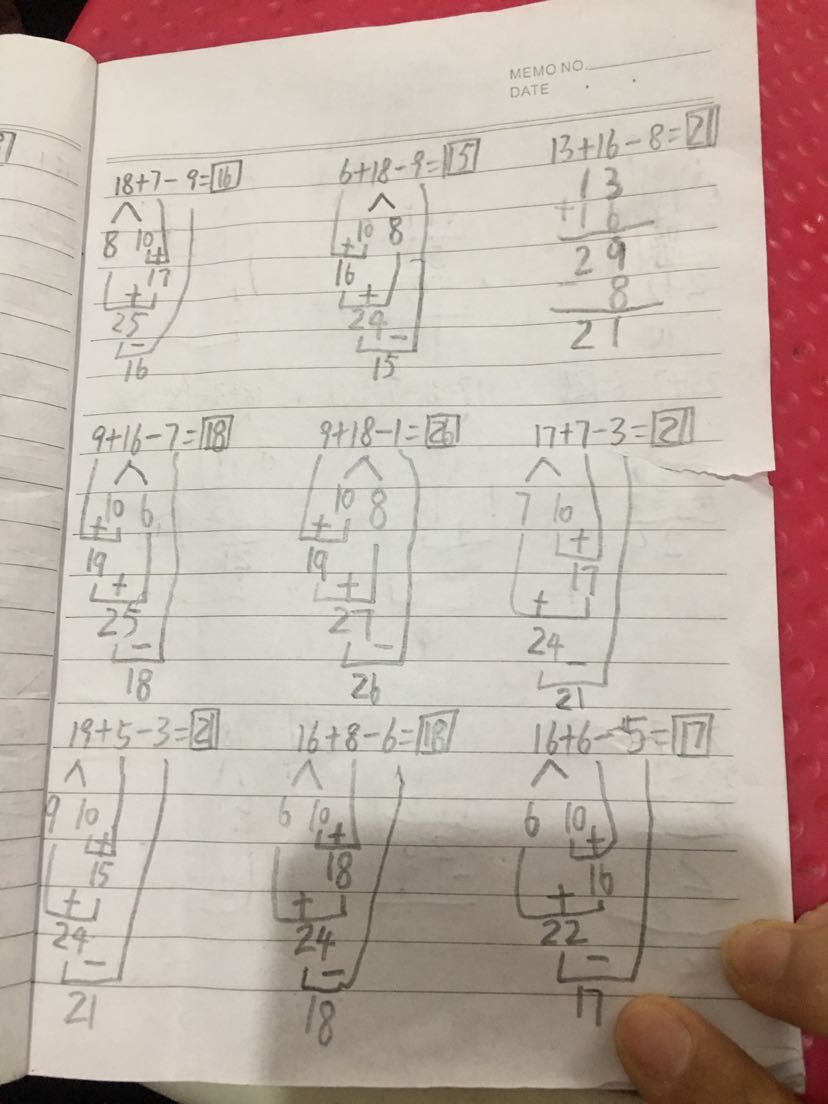 MEMO NO.
DATE . .
18+7-9=16
8 10
+
17
+
25
-
16
6+18-9=15
10 8
+
16
+
24
-
15
13+16-8=21
13
+16
29
- 8
21
9+16-7=18
10 6
+
19
+
25
-
18
9+18-1=26
10 8
+
19
+
27
-
26
17+7-3=21
7 10
+
17
+
24
-
21
19+5-3=21
9 10
+
15
+
24
-
21
16+8-6=18
6 10
+
18
+
24
-
18
16+6-5=17
6 10
+
16
+
22
-
17